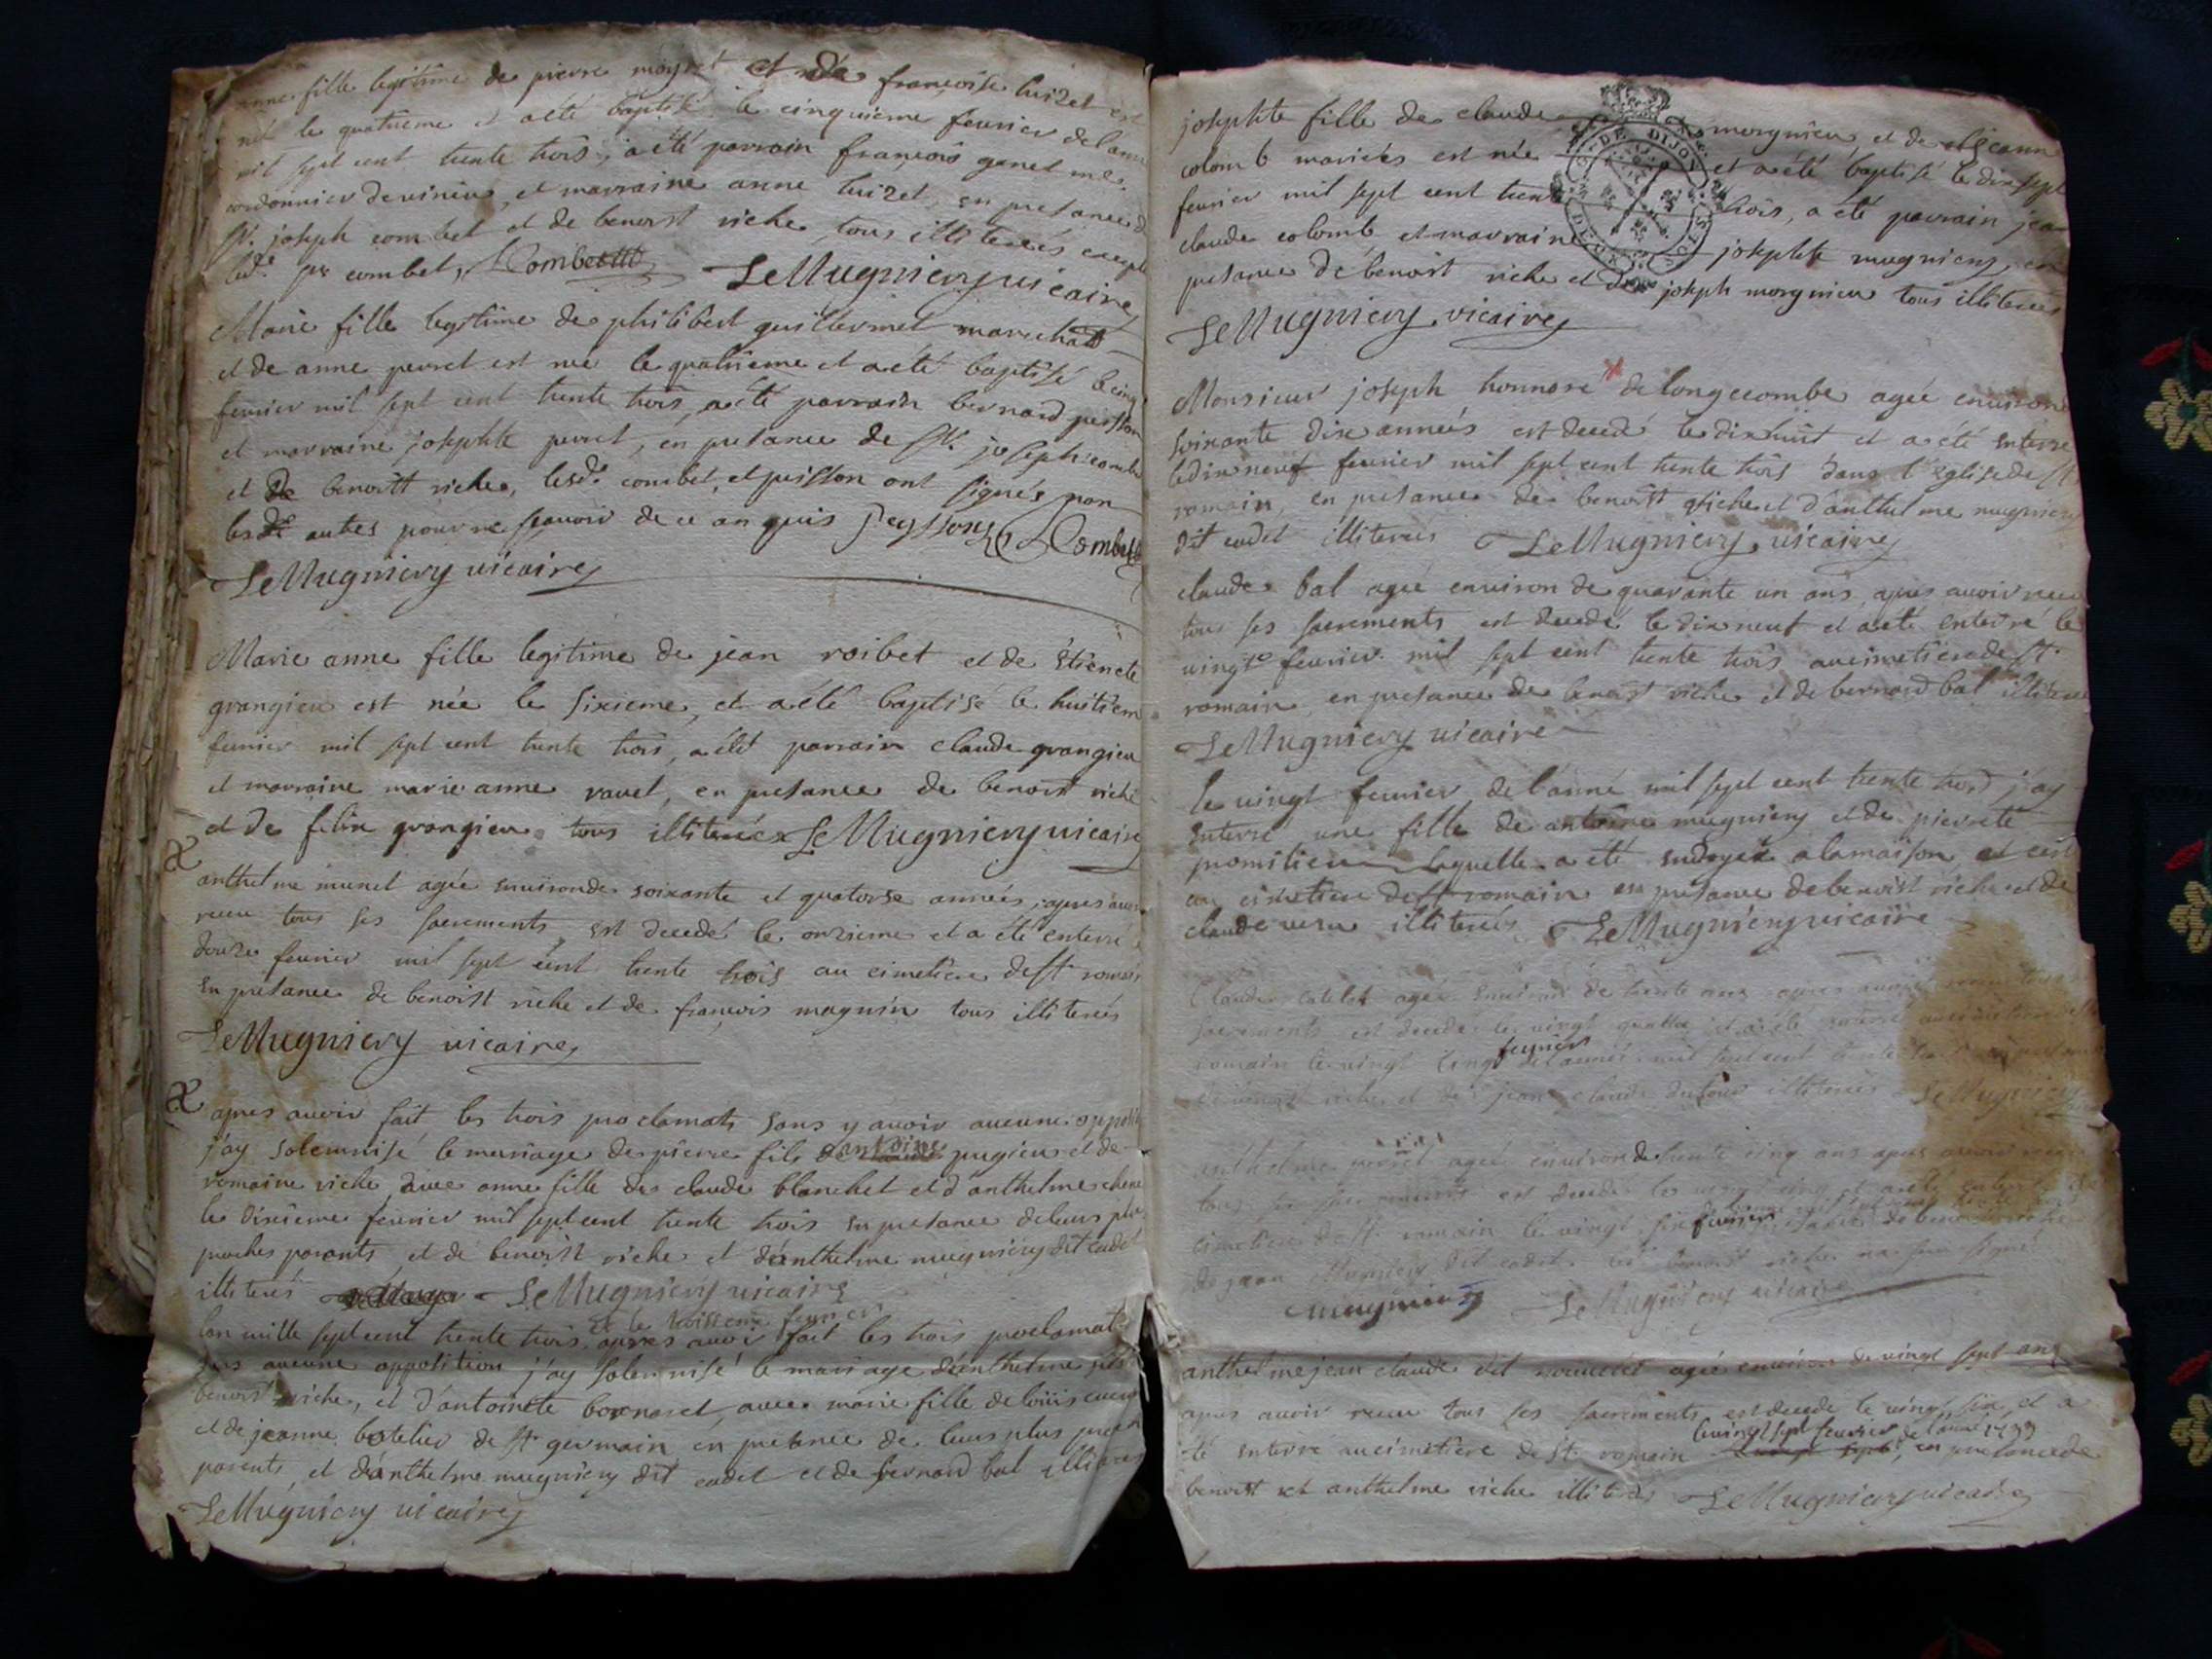 anne fille legitime de pierre moyret et de françoise luizet est
née le quatrieme et a eté baptisé le cinquieme feurier de l'anné
mil sept cent trente trois, a été parrain françois ganet me
cordonnier de uirieu, et marraine anne luizet, en presance de
Sr. joseph combet et de benoist riche, tous illiterés excepté
led. sr combet, Combet LeMugniery uicaire
Marie fille legitime de philibert guillermet marechal
et de anne perret est née le quatrieme et a eté baptisé le cinq
feurier mil sept cent trente trois, a eté parrain bernard peisson
et marraine josephte perret, en presance de Sr. joseph combet
et de benoitt riche, lesd. combet, et peisson ont signés non
les autres pour ne sçauoir de ce enquis Peysson Combet
LeMugniery uicaire
Marie anne fille legitime de jean roibet et de Etienete
grangieu est née le sixieme, et a eté baptisé le huitiem
feurier mil sept cent trente trois, a été parrain claude grangieu
et marraine marie anne rauet, en presance de benoist riche
et de felix grangieu tous illiterés LeMugniery uicaire
anthelme munet agée enuiron de soixante et quatorse années, apres auoir
receu tous ses sacrements est decedé le onzieme et a été enterré
douze feurier mil sept cent trente trois au cimetiere de St romain
en presance de benoist riche et de françois magnin tous illiterés
LeMugniery uicaire
apres auoir fait les trois proclamats sans y auoir aucune oppositi
j'ay solemnisé le mariage de pierre fils de antoine pugieu et de
romaine riche auec anne fille de claude blanchet et d'anthelme chene
le dixieme feurier mil sept cent trente trois en presance de leurs plus
proches parants, et de benoist riche et d'anthelme mugniery dit cadet
illiterés LeMugniery uicaire
et le troisieme feurier
l'an mille sept cent trente trois apres auoir fait les trois proclamats
sans aucune opposition j'ay solemnisé le mariage d'anthelme fils
benoist riche, et d'antoinete bornaret, auec marie fille de loüis
et de jeanne botelier de St germain en presance de leurs plus
parents et d'anthelme mugniery dit cadet et de bernard bal illiteres
LeMugniery uicaire
josephte fille de claude morgnieu, et de jeanne
colomb mariés est née et a eté baptisé le dix sept
feurier mil sept cent trente trois, a été parrain jean
claude colomb et marraine josephte mugniery, en
presance de benoist riche et de joseph morgnieu tous illiteres
LeMugniery uicaire
Monsieur joseph honnore de longecombe agée enuiron
soixante dix années est decedé le dixhuit et a été enterré
le dix neuf feurier mil sept cent trente trois dans l'eglise de St
romain, en presance de benoist riche et d'anthelme mugniery
dit cadet illiterés LeMugniery uicaire
claude bal agée enuiron de quarante un ans apres auoir receu
tous ses sacrements est decedé le dix neuf et a eté enterré le
uingt feurier mil sept cent trente trois au cimetiere de St
romain, en presance de benoist riche et de bernard bal illiteres
LeMugniery uicaire
le uingt feurier de l'année mil sept cent trente trois j'ay
enterré une fille de antoine mugniery et de pierrete
promitieu laquelle a eté endoyée a la maison, et cest
au cimetiere de St romain en presance de benoist riche et de
claude illiterés LeMugniery uicaire
Claude catelet agée enuiron de trente ans apres auoir receu tous
sacrements est decedé le uingt quatre et a eté enterré au cimetiere de St
feurier
romain le uingt cinq de l'année mil sept cent trente trois
de benoist riche et de jean claude illiterés LeMugniery
anthelme perret agée enuiron de trente cinq ans apres auoir receu
tous ses sacrements est decedé le uingt cinq et a eté enterré
cimetiere de St romain le uingt six feurier en presance de benoist riche
de jean Mugniery dit cadet benoist riche na pas signé
mugniery LeMugniery uicaire
anthelme jean claude dit agée enuiron de uingt sept ans
apres auoir receu tous ses sacrements est decedé le uingt six, et a
le uingt sept feurier de l'anné 1733
été enterré au cimetiere de St. romain en presance de
benoist et anthelme riche illiterés LeMugniery uicaire